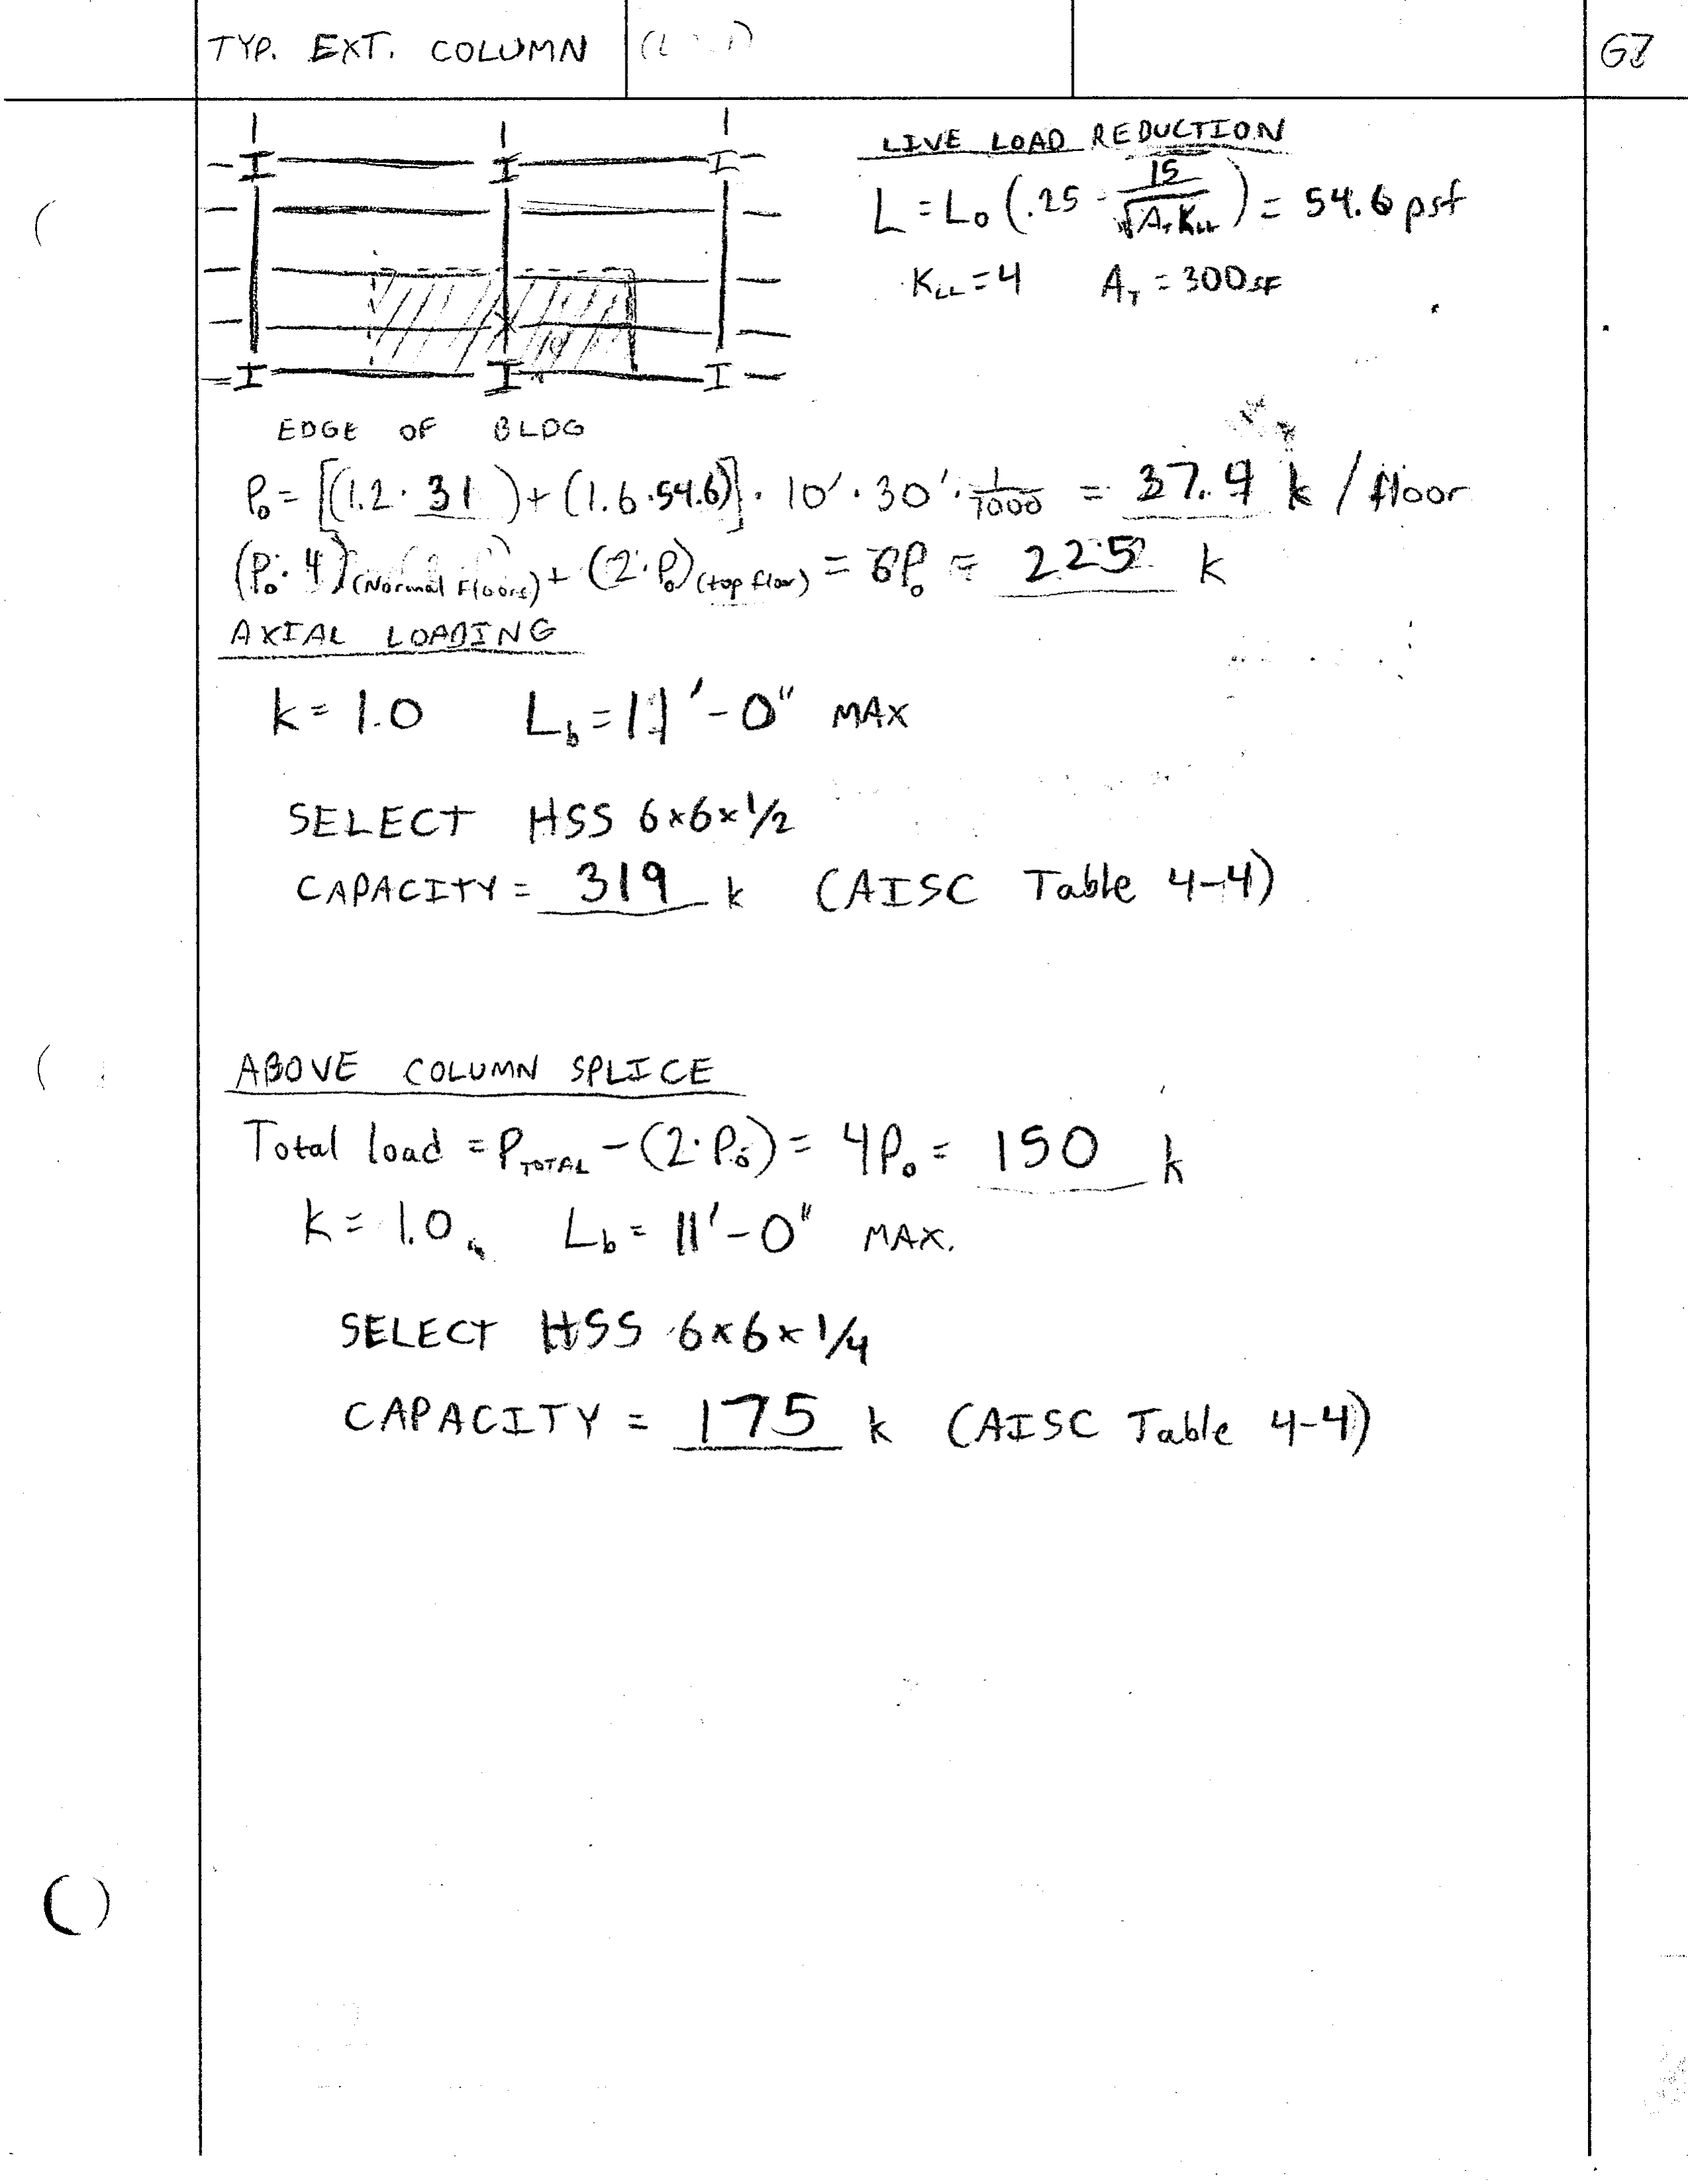 TYP. EXT. COLUMN
G7
LIVE LOAD REDUCTION
L = L₀ (.25 - 15/√(A_T K_LL)) = 54.6 psf
K_LL = 4 A_T = 300 SF
EDGE OF BLDG
P₀ = [(1.2 · 31) + (1.6 · 54.6)] · 10' · 30' · 1/1000 = 37.9 k / floor
(P₀ · 4)(Normal Floors) + (2 · P₀)(top floor) = 6P₀ = 225 k
AXIAL LOADING
k = 1.0 L_b = 11'-0" MAX
SELECT HSS 6x6x1/2
CAPACITY = 319 k (AISC Table 4-4)
ABOVE COLUMN SPLICE
Total load = P_TOTAL - (2 · P₀) = 4P₀ = 150 k
k = 1.0 L_b = 11'-0" MAX.
SELECT HSS 6x6x1/4
CAPACITY = 175 k (AISC Table 4-4)